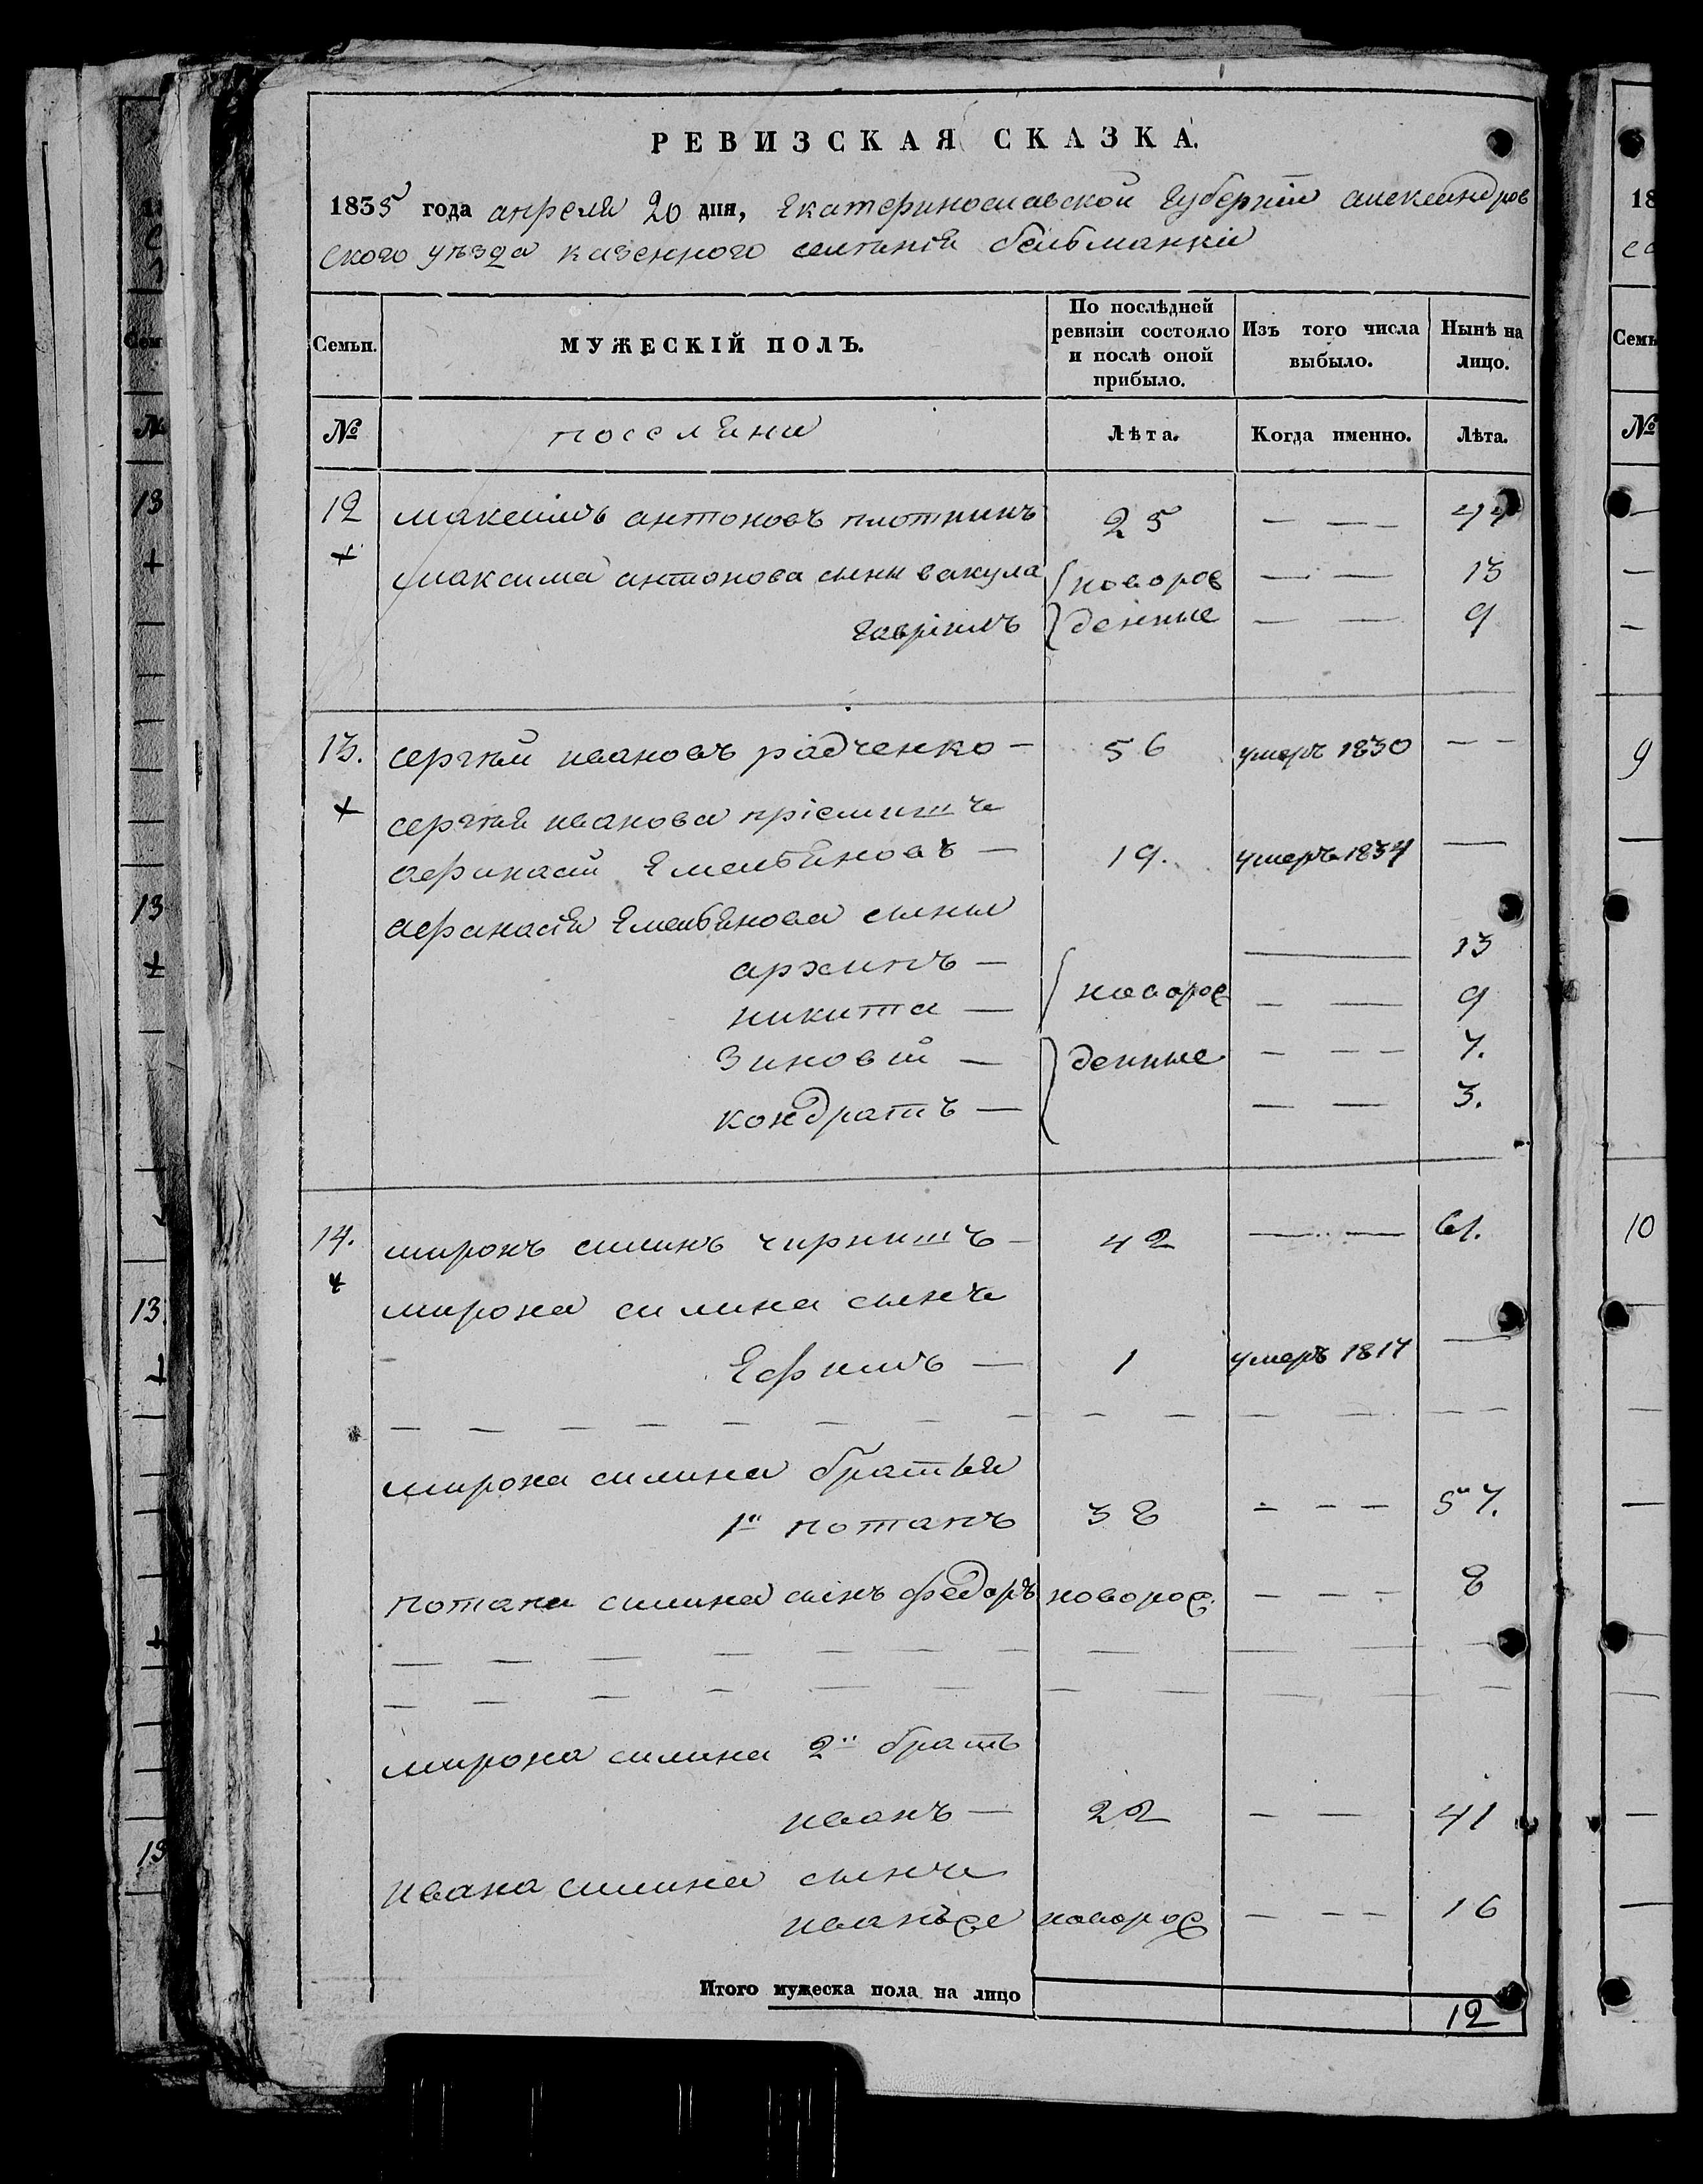 РЕВИЗСКАЯ СКАЗКА.
1835 года апреля 20 дня, Екатеринославской Губернiи александров
ского уѣзда казенного селенiя бѣльманки
Семьи. МУЖЕСКІЙ ПОЛЪ. По послѣдней ревизіи состояло и послѣ оной прибыло. Изъ того числа выбыло. Нынѣ на лицо.
№ поселяни Лѣта. Когда именно. Лѣта.
12 максимъ антоновъ плотникъ 25 — — 44
+ максима антонова сыны вакула новорож — — 13
гаврiилъ денные — — 9
13. сергѣй ивановъ радченко — 56 умеръ 1830 — —
+ сергѣя иванова прiемышъ
афанасiй Емельяновъ — 19. умеръ 1834 —
афанасiя Емельянова сыны
архипъ — — 13
никита — новорож — — 9
Зиновiй — денные — — — 7.
кондратъ — — — 3.
14. миронъ силинъ чирнишъ — 42 — — 61.
+ мирона силина сынъ
Ефимъ — 1 умеръ 1817 —
мирона силина братья
1й потапъ 38 — — — 57.
потапа силина сынъ федоръ новорож. — — — 8
мирона силина 2й братъ
иванъ — 22 — — 41
Ивана силина сынъ
иванъже новорож — — — 16
Итого мужеска пола на лицо 12
18
Семь
№
9
10
13
+
13
+
13
+
+
13